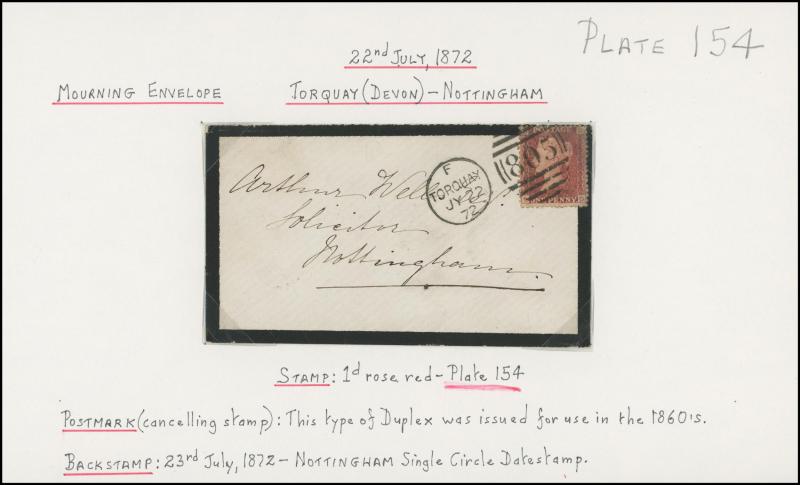 PLATE 154
22nd JULY, 1872
MOURNING ENVELOPE TORQUAY (DEVON) - NOTTINGHAM
805
POSTAGE
ONE PENNY
F
TORQUAY
JY 22
72
Arthur
Solicitor
Nottingham.
STAMP: 1d rose red - Plate 154
POSTMARK (cancelling stamp): This type of Duplex was issued for use in the 1860's.
BACKSTAMP: 23rd July, 1872 - NOTTINGHAM Single Circle Datestamp.